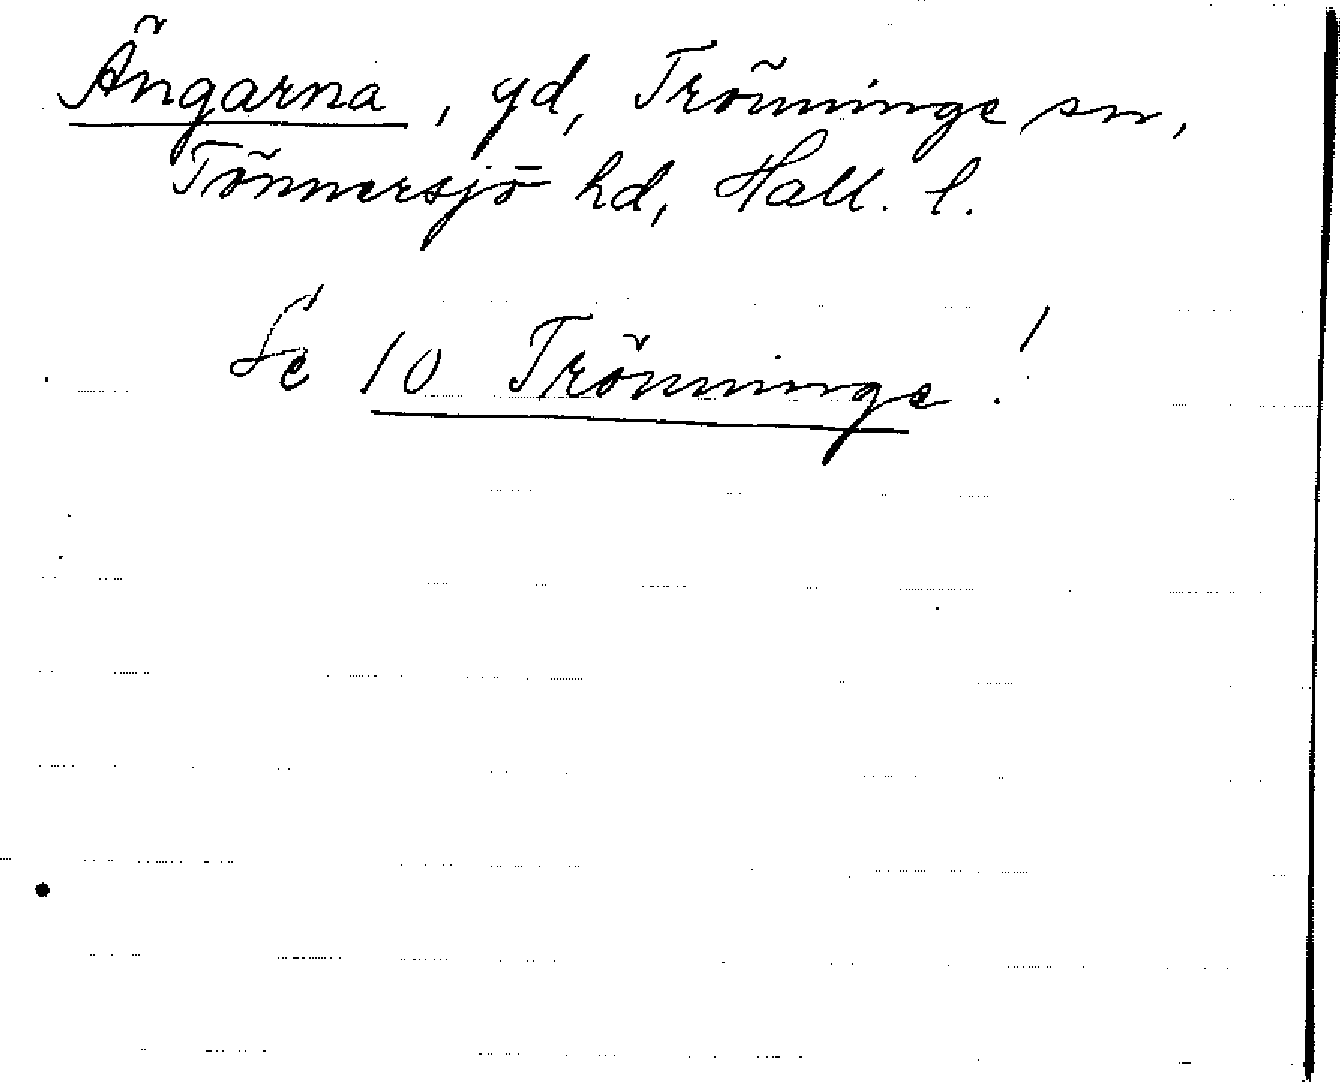 Ängarna, yd, Trönninge sn,
Tönnersjö hd, Hall. l.
Se 10 Trönninge!